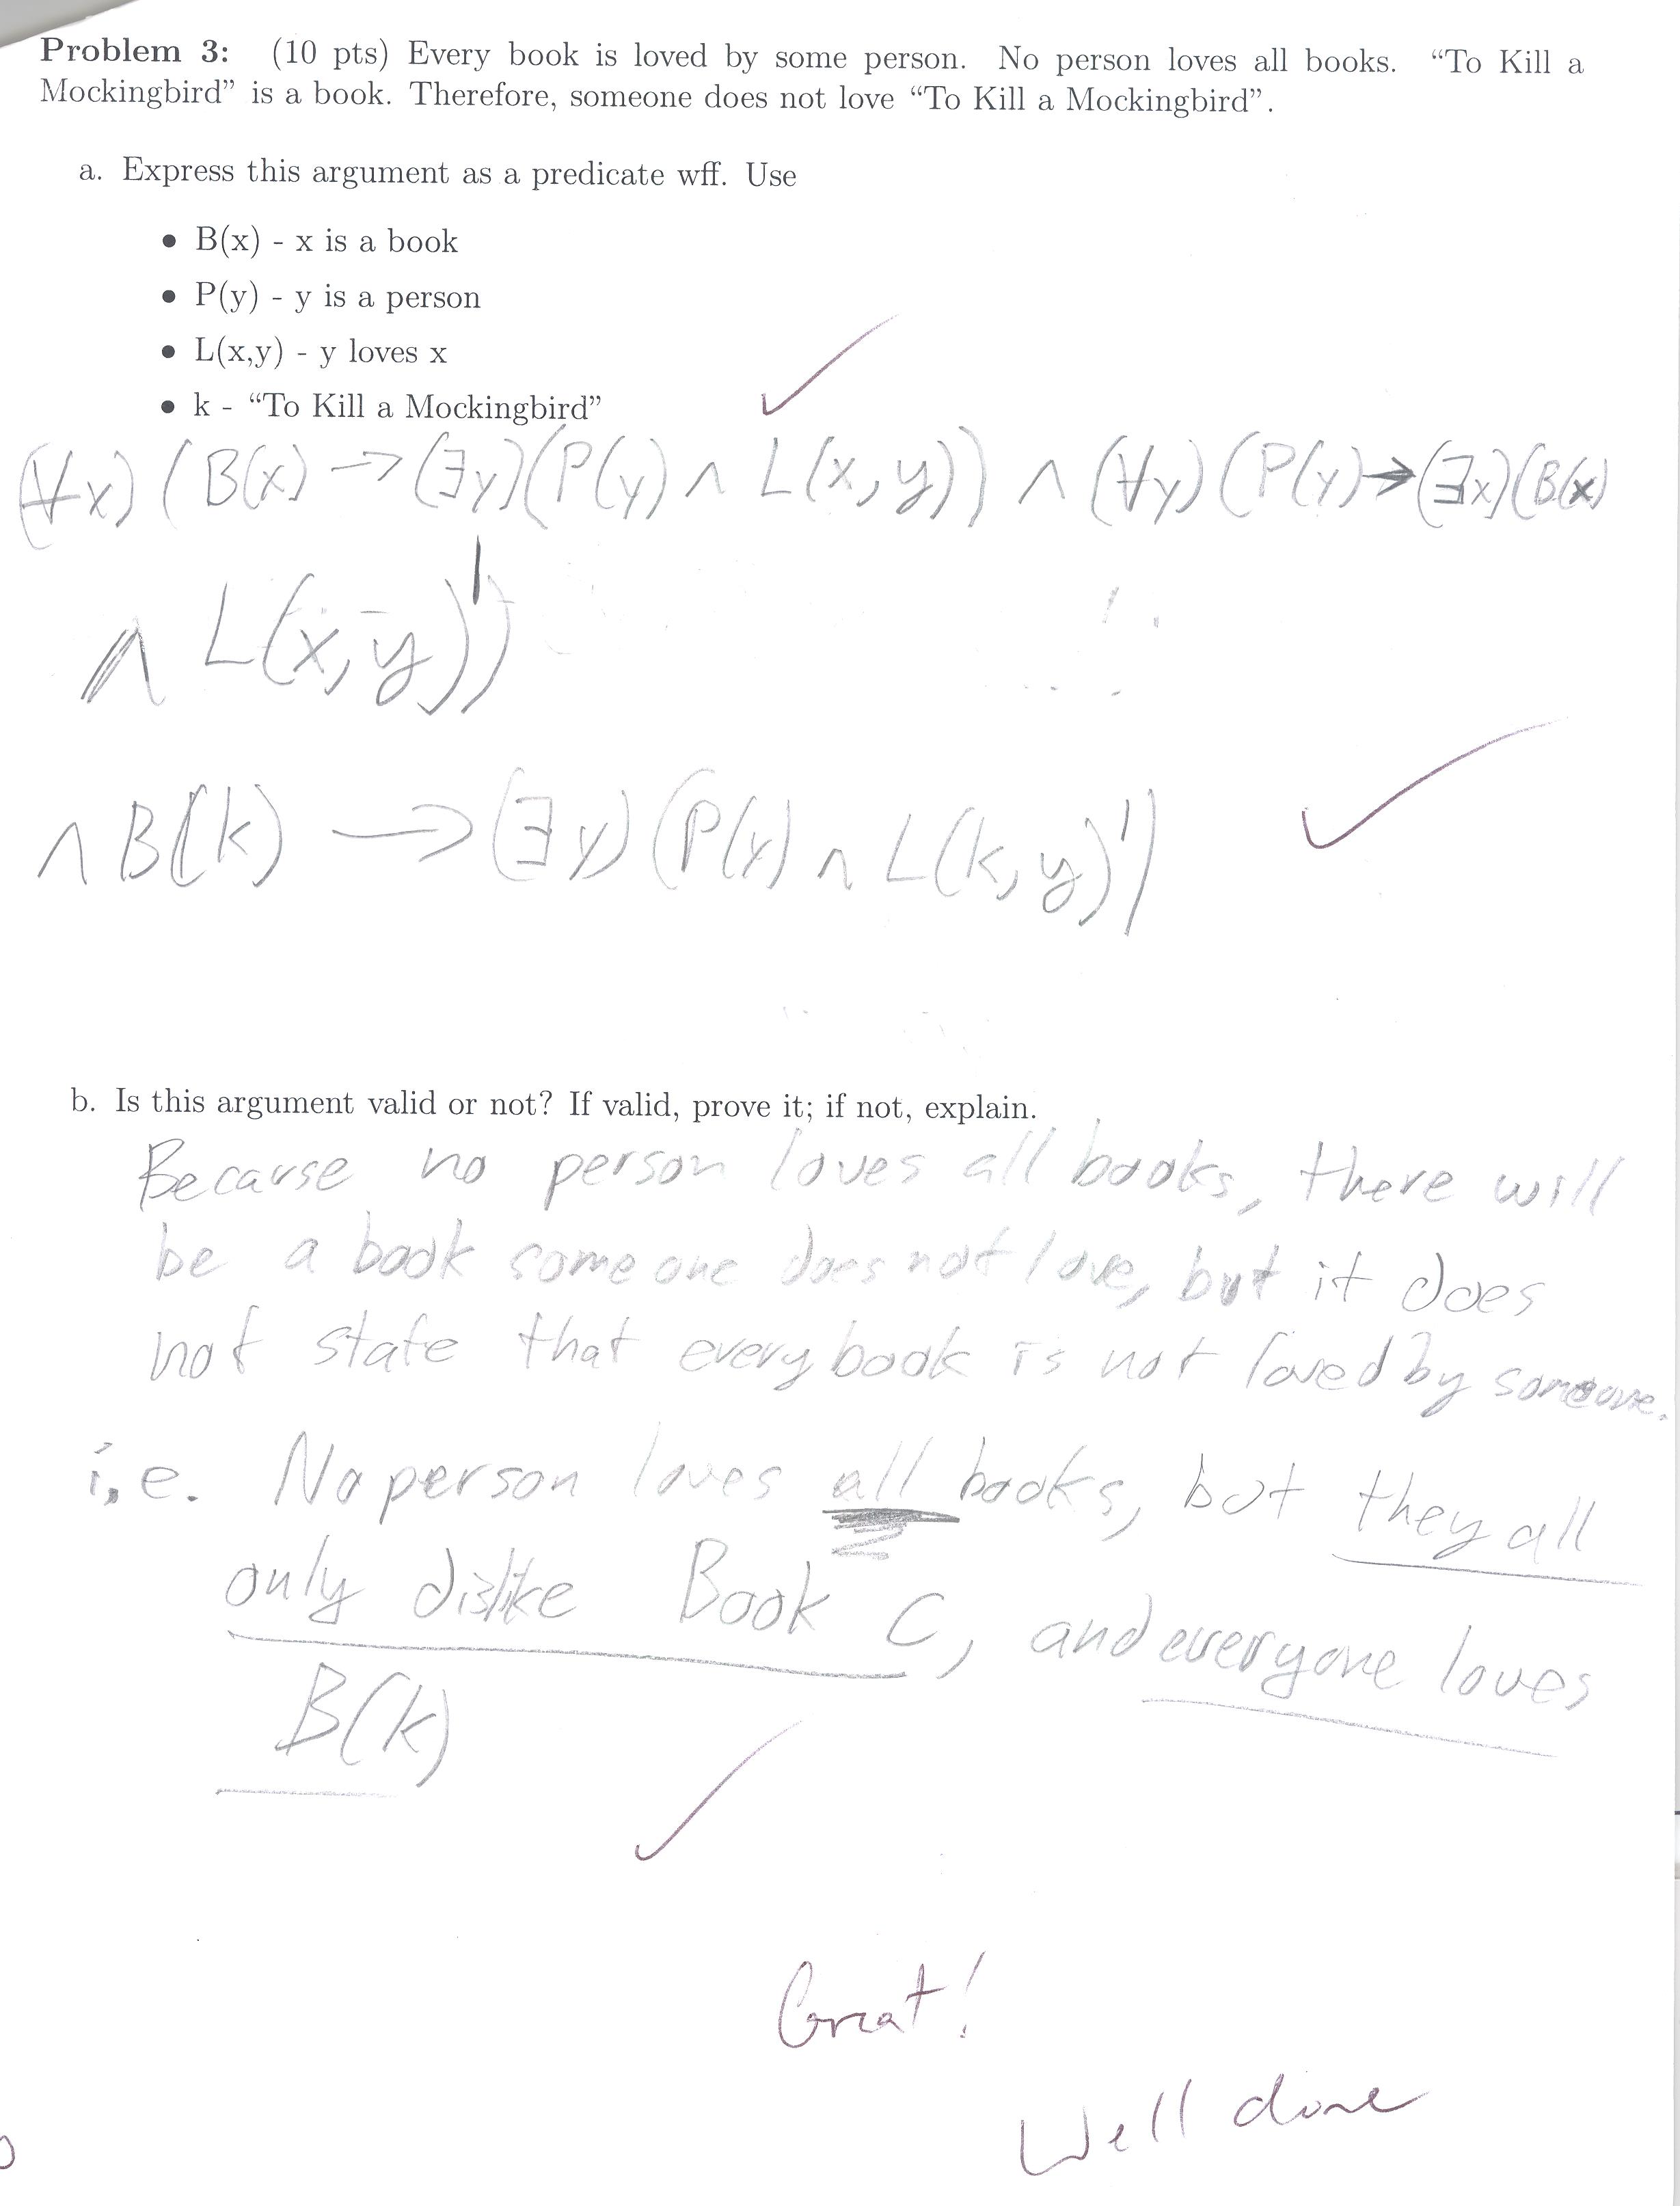 Problem 3: (10 pts) Every book is loved by some person. No person loves all books. “To Kill a
Mockingbird” is a book. Therefore, someone does not love “To Kill a Mockingbird”.
a. Express this argument as a predicate wff. Use
• B(x) - x is a book
• P(y) - y is a person
• L(x,y) - y loves x
• k - “To Kill a Mockingbird”
(∀x) (B(x) → (∃y)(P(y) ∧ L(x,y)) ∧ (∀y) (P(y) → (∃x)(B(x)
∧ L(x,y)'))
∧ B(k) → (∃y) (P(y) ∧ L(k,y)')
b. Is this argument valid or not? If valid, prove it; if not, explain.
Because no person loves all books, there will
be a book someone does not love, but it does
not state that every book is not loved by someone.
i.e. No person loves all books, but they all
only dislike Book C, and everyone loves
B(k)
Great!
Well done